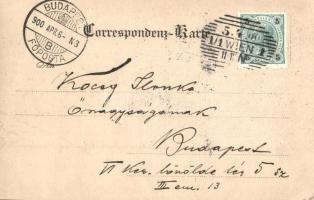 BUDAPEST
900 APR. 6- N3
B
FŐPOSTA
Correspondenz-Karte
5. 4. 00
1/1 WIEN 1
5 5
Kócsy Ilonka
Őnagyságának
Budapest
VI Ker. lövölde tér 5 sz
III em. 13